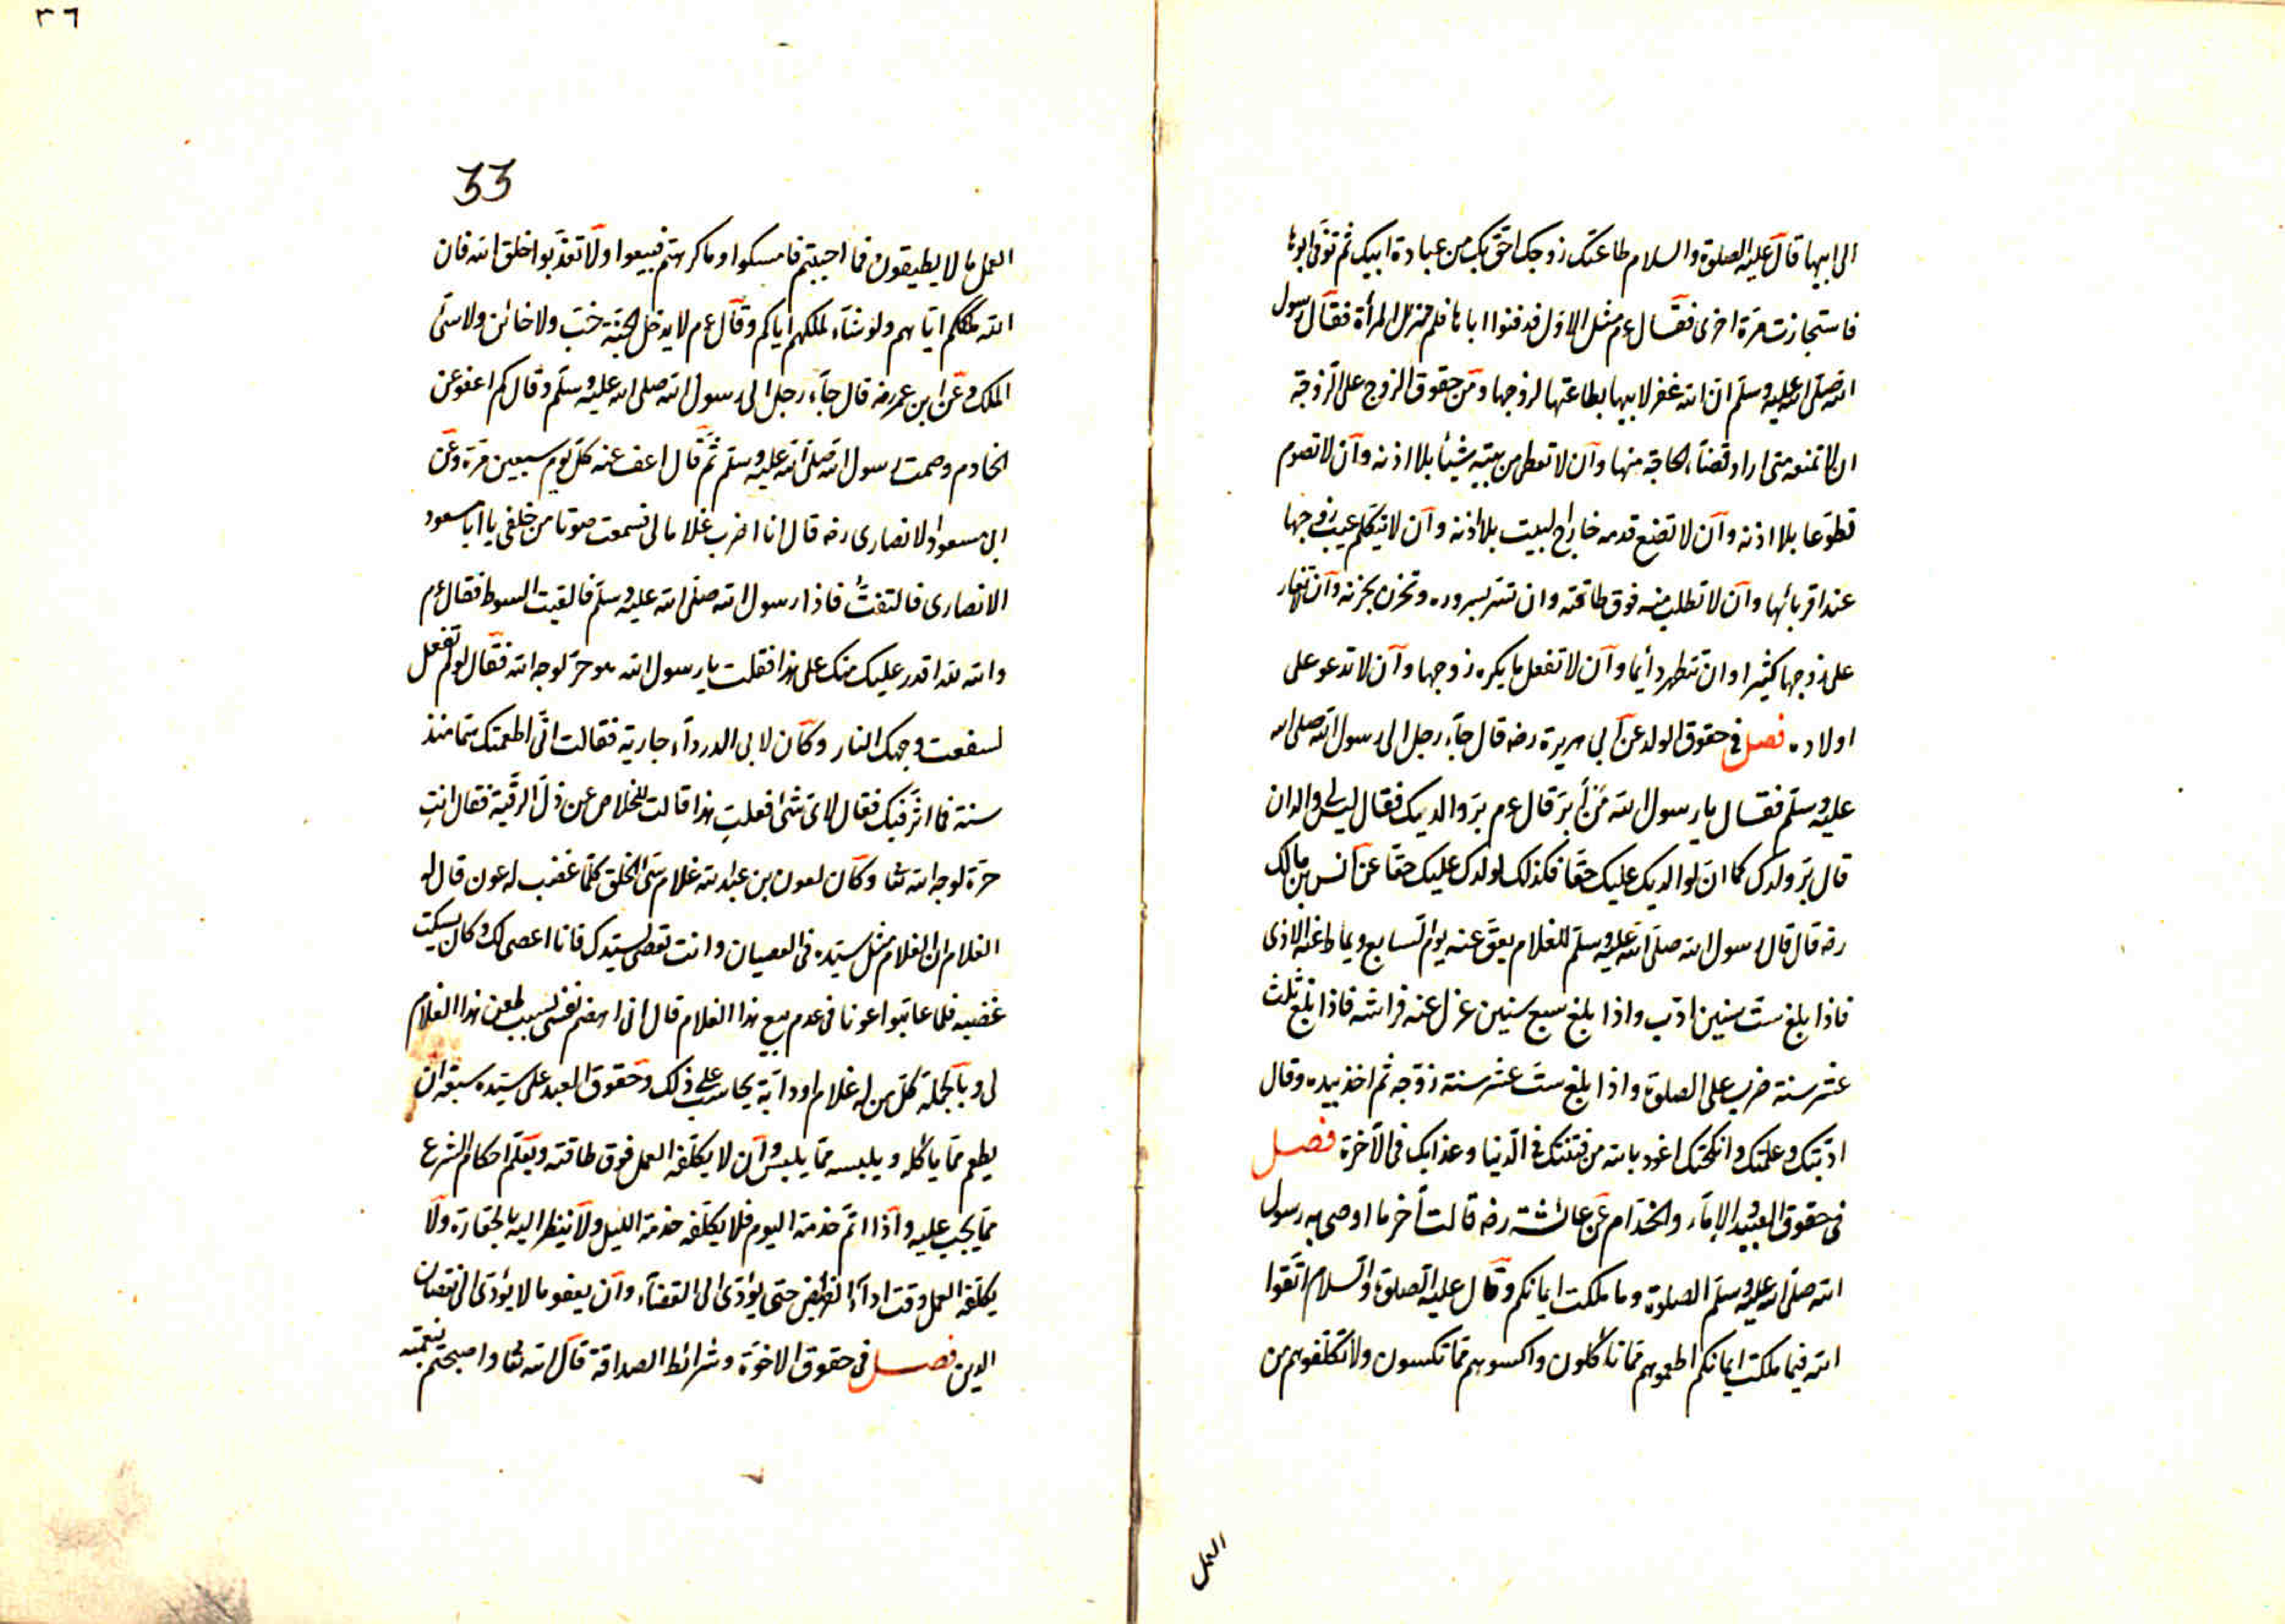 الى ابيها قال عليه الصلوة والسلام طاعتك زوجك احق بك من عيادة ابيك ثم توفى ابوها
فاستجازت مرة اخرى فقال ءم مثل الاول فدفنوا اباها فلم تنزل المرأة فقال رسول
الله صلى الله عليه وسلم ان الله غفر لابيها بطاعتها لزوجها ومن حقوق الزوج على الزوجة
ان لا تمنعه متى اراد قضاء الحاجة منها وان لا تعطى من بيته شيئا بلا اذنه وان لا تصوم
تطوعا بلا اذنه وان لا تضع قدمه خارج البيت بلا اذنه وان لا يتكلم عيب زوجها
عند اقربائها وان لا تطلب منه فوق طاقته وان تسر بسروره وتحزن بحزنه وان لا تغار
على زوجها كثيرا وان تتطهر دائما وان لا تفعل ما يكره زوجها وان لا تدعو على
اولاده فصل فى حقوق الولد عن ابى هريرة رضه قال جاء رجل الى رسول الله صلى الله
عليه وسلم فقال يا رسول الله من أبر قال ءم بر والديك فقال ليس لى والدان
قال بر ولدك كما ان لوالديك عليك حقا فكذلك لولدك عليك حقا عن انس بن مالك
رضه قال قال رسول الله صلى الله عليه وسلم للغلام يعق عنه يوم السابع ويماط عنه الاذى
فاذا بلغ ست سنين ادب واذا بلغ سبع سنين عزل عنه فراشه فاذا بلغ ثلث
عشر سنة ضرب على الصلوة واذا بلغ ست عشر سنة زوجه ثم اخذ بيده وقال
ادبتك وعلمتك وانكحتك اعوذ بالله من فتنتك فى الدنيا وعذابك فى الآخرة فصل
فى حقوق العبيد والإماء والخدام عن عائشة رضه قالت آخر ما اوصى به رسول
الله صلى الله عليه وسلم الصلوة وما ملكت ايمانكم وقال عليه الصلوة والسلام اتقوا
الله فيما ملكت ايمانكم اطعموهم مما تأكلون واكسوهم مما تكسون ولا تكلفوهم من
العمل
٣٦
33
العمل ما لا يطيقون فما احببتم فامسكوا وما كرهتم فبيعوا ولا تعذبوا خلق الله فان
الله ملككم اياهم ولو شاء لملكهم اياكم وقال ءم لا يدخل الجنة خب ولا خائن ولا سئ
الملك وعن ابن عمر رضه قال جاء رجل الى رسول الله صلى الله عليه وسلم وقال كم اعفو عن
الخادم وصمت رسول الله صلى الله عليه وسلم ثم قال اعف عنه كل يوم سبعين مرة وعن
ابى مسعود الانصارى رضه قال انا اضرب غلاما لى فسمعت صوتا من خلفى يا ابا مسعود
الانصارى فالتفت فاذا رسول الله صلى الله عليه وسلم فالقيت السوط فقال ءم
والله لله اقدر عليك منك على هذا فقلت يا رسول الله هو حر لوجه الله فقال لو لم تفعل
لسفعت وجهك النار وكان لابى الدرداء جارية فقالت انى اطعمتك سما منذ
سنة فما اثر فيك فقال لاى شئ فعلت هذا قالت للخلاص عن ذل الرقية فقال انت
حرة لوجه الله تعا وكان لعون بن عبد الله غلام سئ الخلق كلما غضب له عون قال له
الغلام ان الغلام مثل سيده فى العصيان وانت تعصى لسيدك فانا اعصى لك وكان يسكت
غضبه فلما عاتبوا عونا فى عدم بيع هذا الغلام قال انى اهضم نفسى بسبب طعن هذا الغلام
لى وبالجملة كل من له غلام او دابة يحاسب على ذلك وحقوق العبد على سيده سبعة ان
يطعم مما يأكله ويلبسه مما يلبس وان لا يكلفه العمل فوق طاقته ويعلم احكام الشرع
مما يجب عليه واذا اتم خدمة اليوم فلا يكلفه خدمة الليل ولا ينظر اليه بالحقارة ولا
يكلفه العمل وقت اداء الفرائض حتى يؤدى الى القضاء وان يعفو ما لا يؤدى الى نقصان
الدين فصل فى حقوق الاخوة وشرائط الصداقة قال الله تعا واصبحتم بنعمته